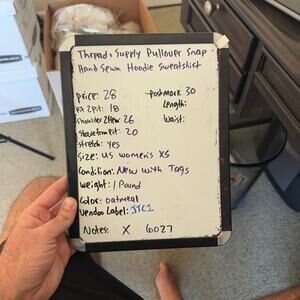 Thread & Supply Pullover Snap
Hand Sewn Hoodie Sweatshirt
price: 28
Poshmark 30
Pit 2 pit: 18
Length:
Shoulder 2 Hem: 26
Waist:
Sleeve from Pit: 20
Stretch: yes
Size: US women's XS
Condition: New with Tags
weight: 1 Pound
Color: oatmeal
Vendoo Label: JTC1
Notes: X 6027